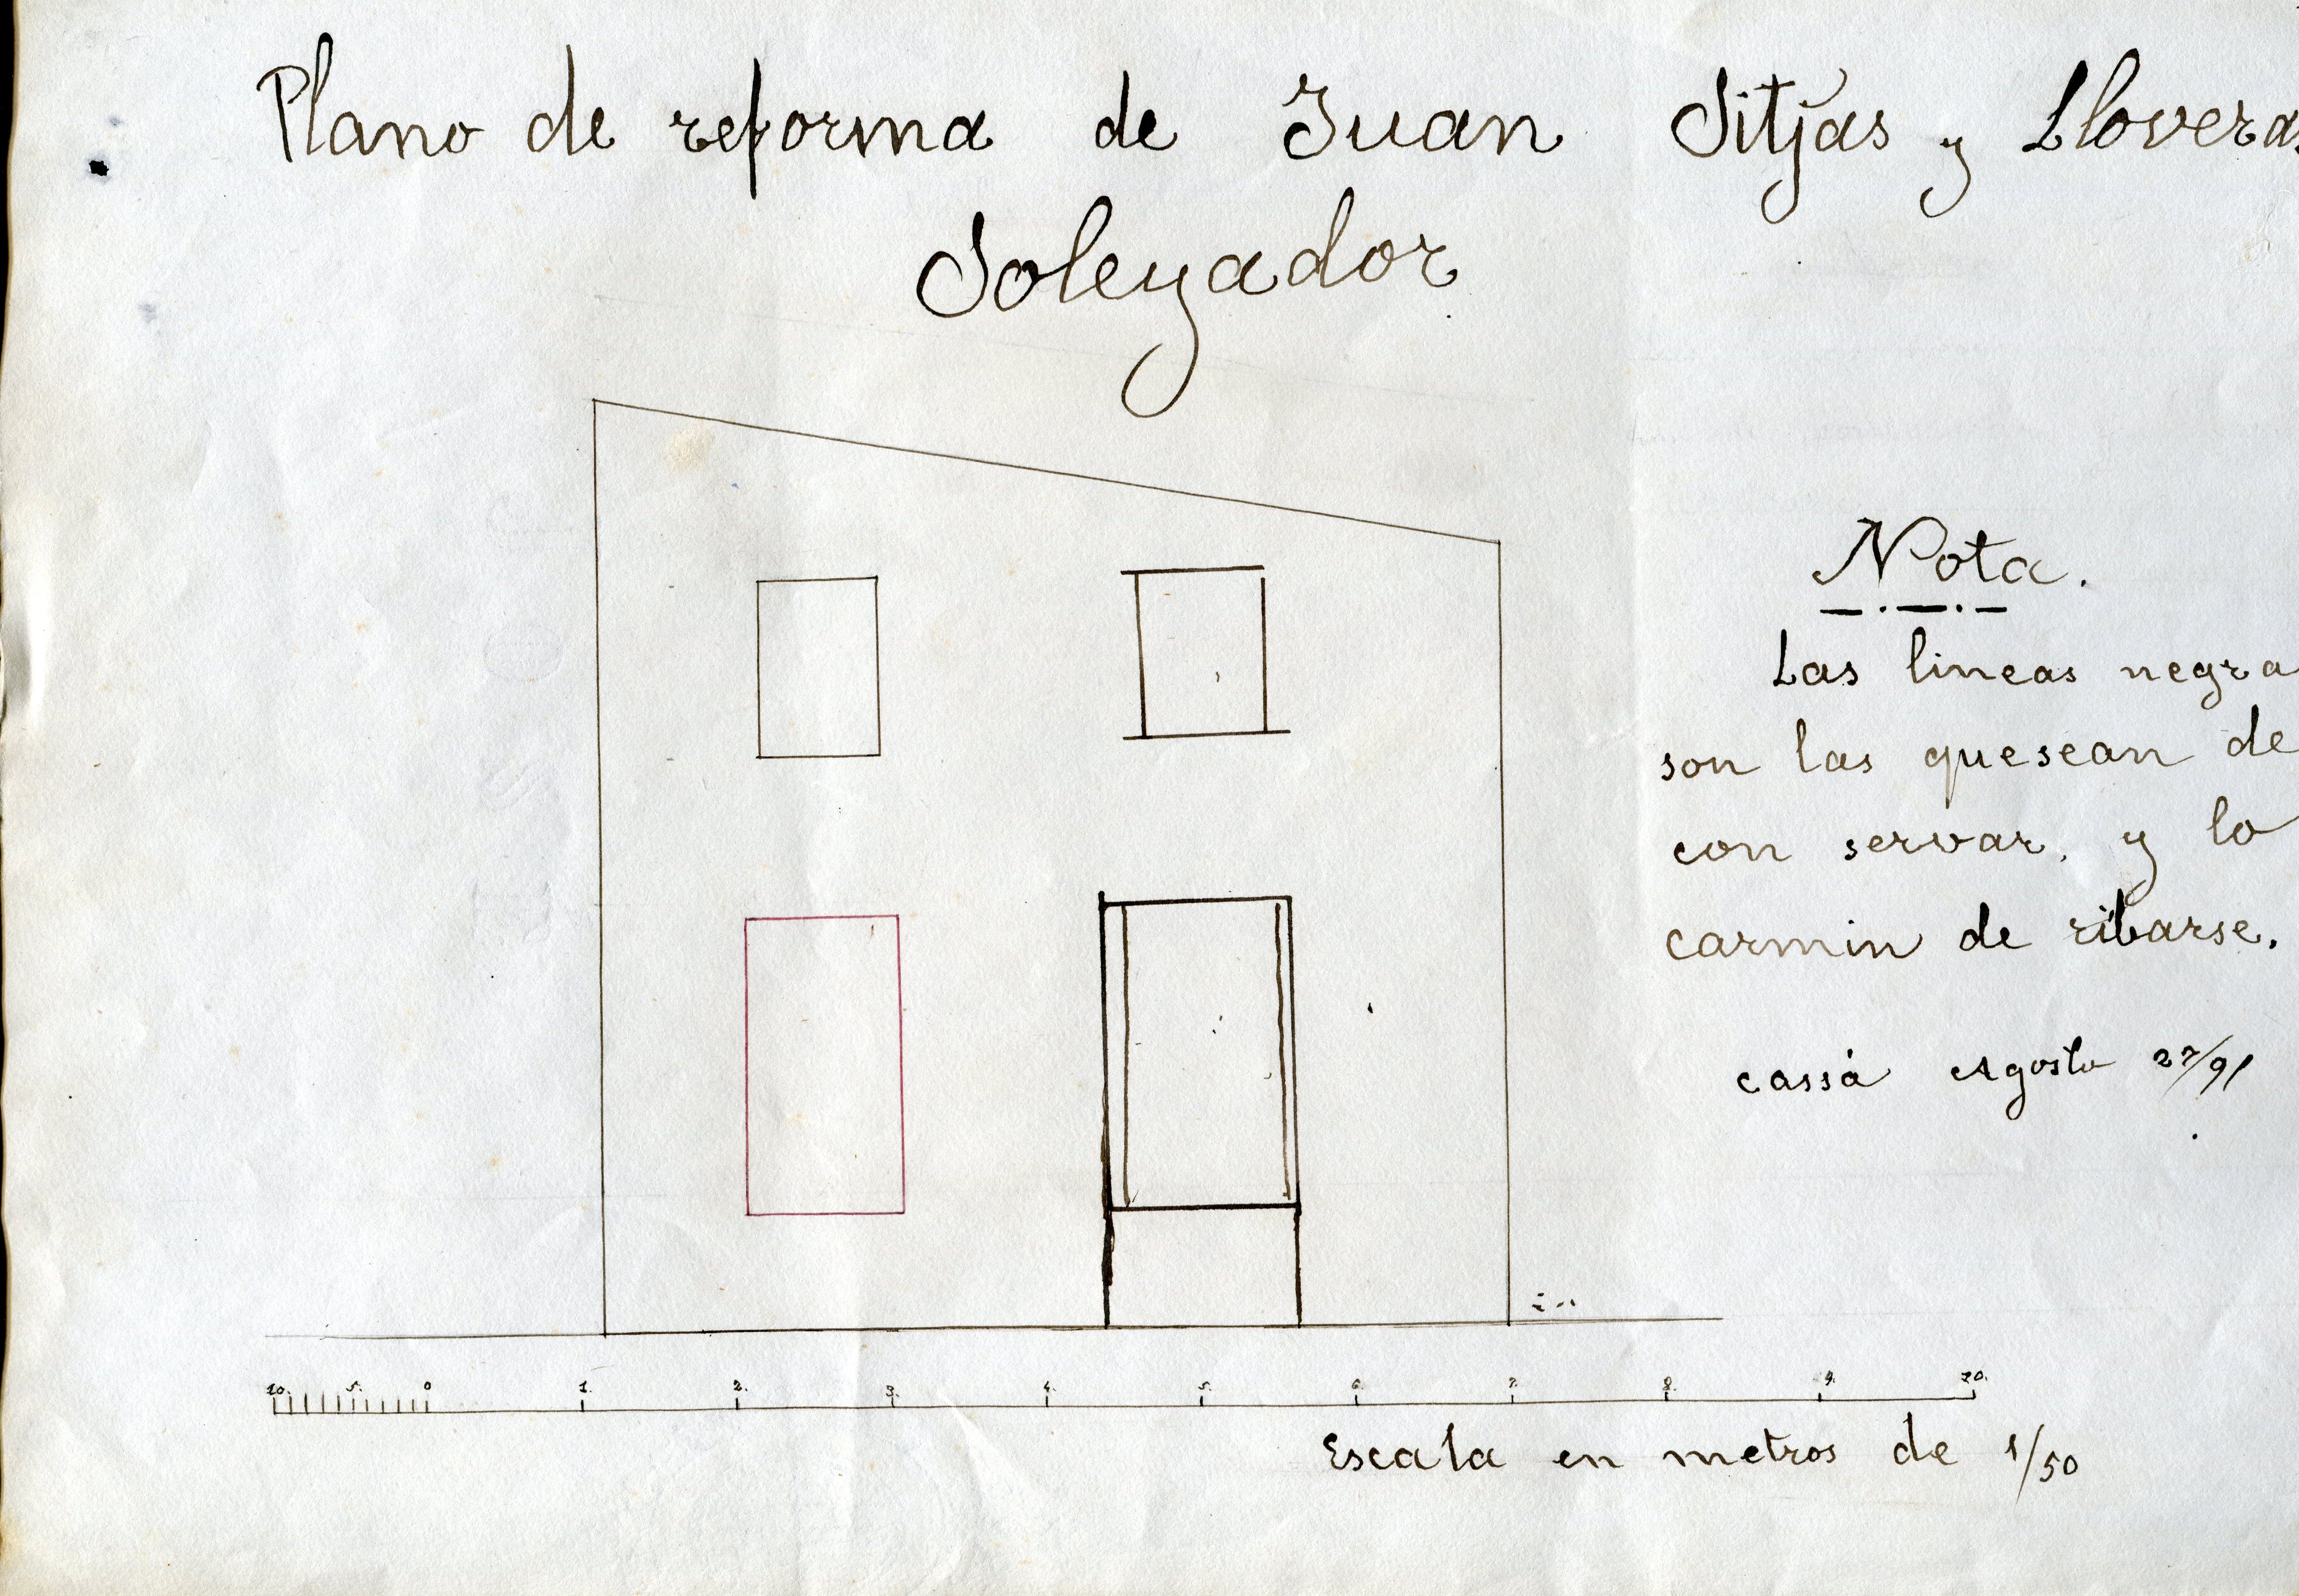 Plano de reforma de Juan Sitjas y Lloveras
Soleyador
Nota.
Las lineas negra
son las quesean de
con servar. y lo
carmin de ribarse.
cassá Agosto 27/91
10. 5. 0 1. 2. 3. 4. 5. 6. 7. 8. 9. 10.
Escala en metros de 1/50